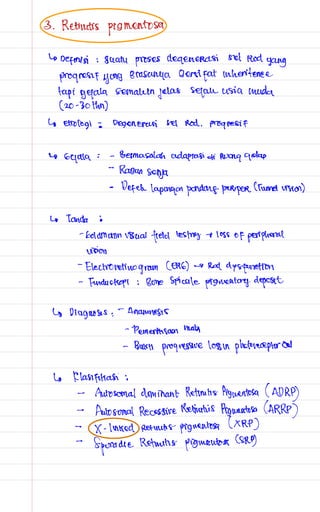 3. Retinitis pigmentosa
↳ Definisi : Suatu proses degenerasi sel Rod yang
progresif yang biasanya bersifat inheritence
tapi gejala semakin jelas sejak usia muda
(20-30 thn)
↳ etiologi : Degenerasi sel Rod. progresif
↳ Gejala : - Bermasalah adaptasi di Ruang gelap
- Rabun Senja
- Defek lapangan pandang perifer (Tunnel vision)
↳ Tanda :
- Goldmann visual field testing → loss of peripheral
vision
- Electroretinogram (ERG) → Rod dysfunction
- Funduskopi : Bone Spicule pigmentary deposit
↳ Diagnosis : - Anamnesis
- Pemeriksaan mata
- Bukti progressive loss in photoreceptor cell
↳ Klasifikasi :
- Autosomal dominant Retinitis Pigmentosa (ADRP)
- Autosomal Recessive Retinitis Pigmentosa (ARRP)
- X-linked Retinitis pigmentosa (XRP)
- Sporadic Retinitis pigmentosa (SRP)